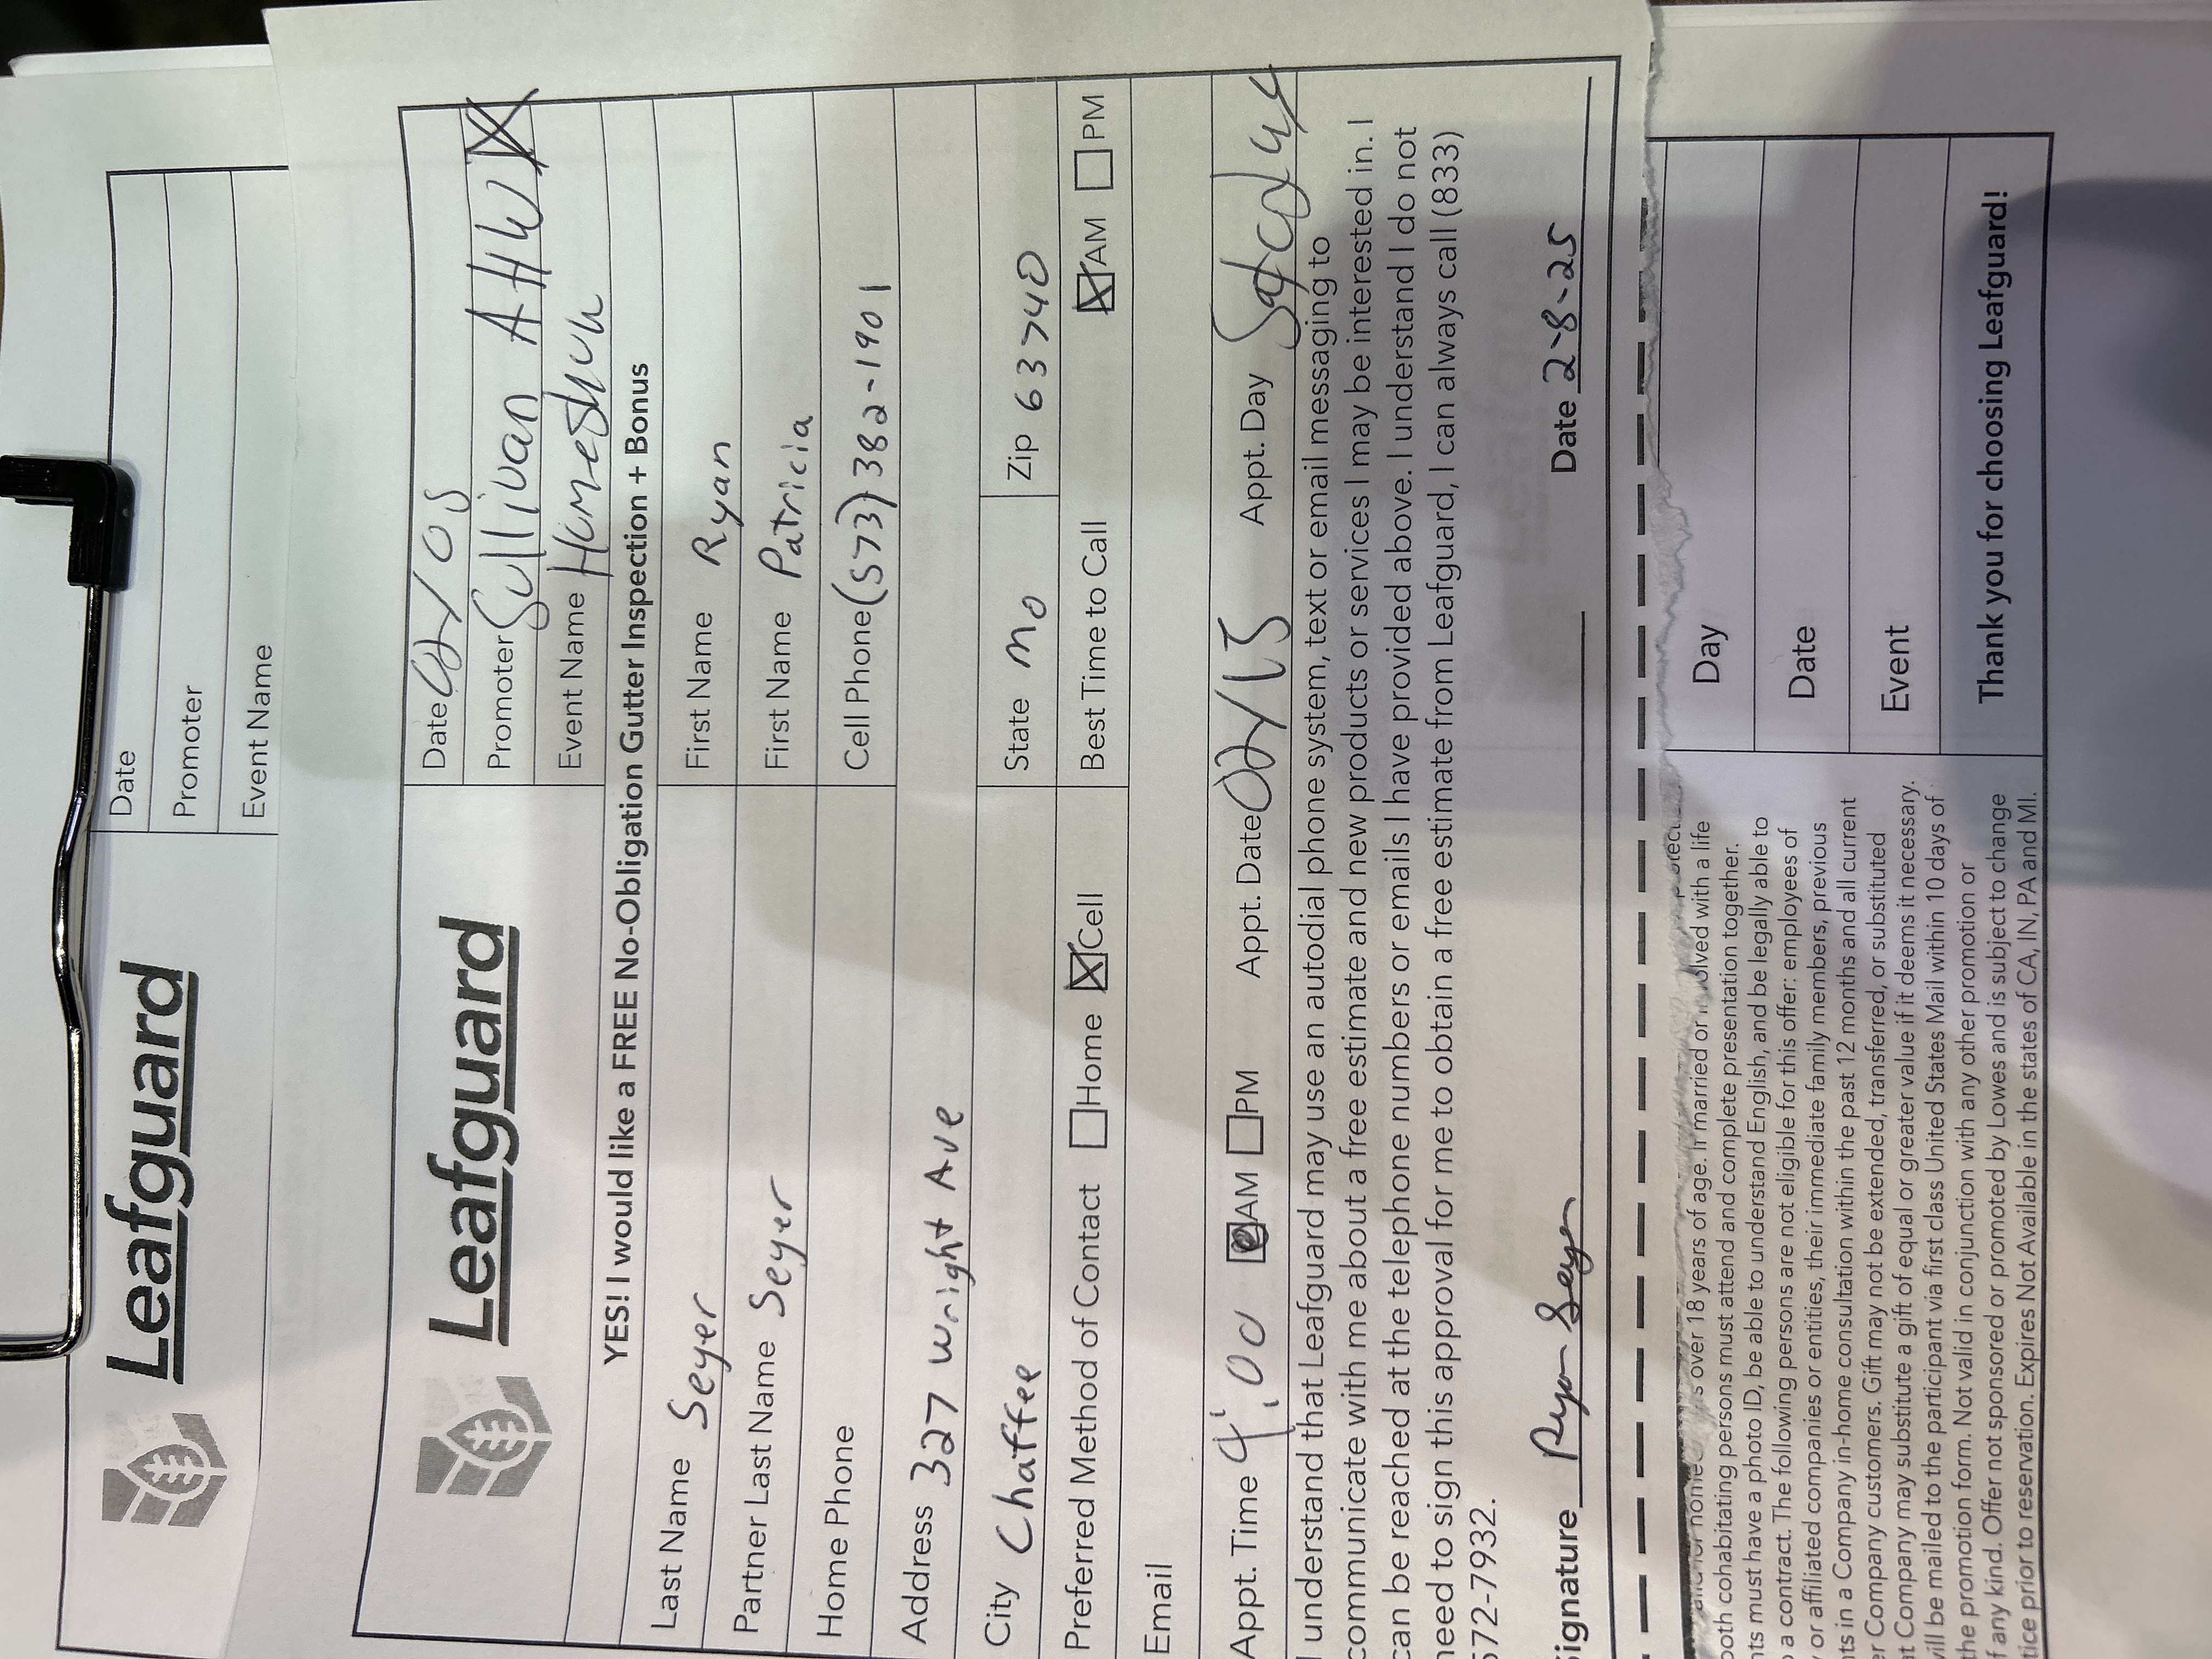 Leafguard
Date
Promoter
Event Name
Leafguard
Date 02/08
Promoter Sullivan AHW
Event Name Homeshow
YES! I would like a FREE No-Obligation Gutter Inspection + Bonus
Last Name Seyer First Name Ryan
Partner Last Name Seyer First Name Patricia
Home Phone Cell Phone (573) 382-1901
Address 327 Wright Ave
City Chaffee State Mo Zip 63740
Preferred Method of Contact Home Cell Best Time to Call AM PM
Email
Appt. Time 9:00 AM PM Appt. Date 02/15 Appt. Day Saturday
I understand that Leafguard may use an autodial phone system, text or email messaging to
communicate with me about a free estimate and new products or services I may be interested in. I
can be reached at the telephone numbers or emails I have provided above. I understand I do not
need to sign this approval for me to obtain a free estimate from Leafguard, I can always call (833)
572-7932.
Signature Ryan Seyer Date 2-8-25
s over 18 years of age. If married or involved with a life
both cohabitating persons must attend and complete presentation together.
nts must have a photo ID, be able to understand English, and be legally able to
a contract. The following persons are not eligible for this offer: employees of
or affiliated companies or entities, their immediate family members, previous
nts in a Company in-home consultation within the past 12 months and all current
er Company customers. Gift may not be extended, transferred, or substituted
at Company may substitute a gift of equal or greater value if it deems it necessary.
will be mailed to the participant via first class United States Mail within 10 days of
the promotion form. Not valid in conjunction with any other promotion or
f any kind. Offer not sponsored or promoted by Lowes and is subject to change
tice prior to reservation. Expires Not Available in the states of CA, IN, PA and MI.
Day
Date
Event
Thank you for choosing Leafguard!